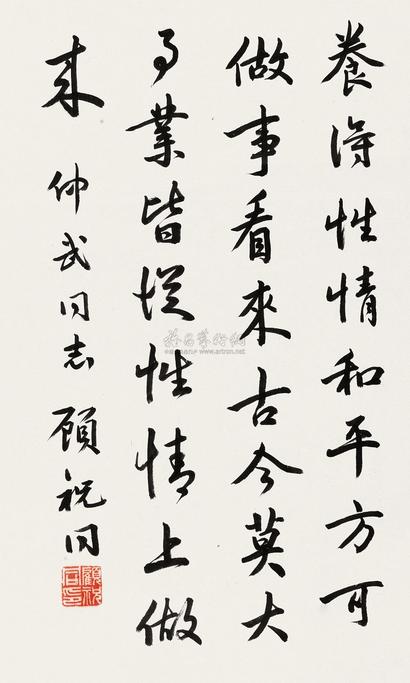 養得性情和平方可
做事看來古今莫大
事業皆從性情上做
來 仲武同志 顾祝同
顧祝同印
www.artron.net